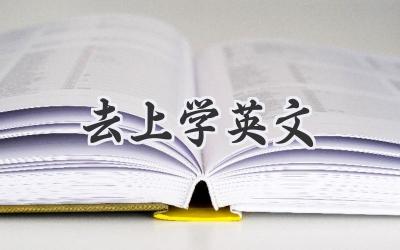 去上学英文